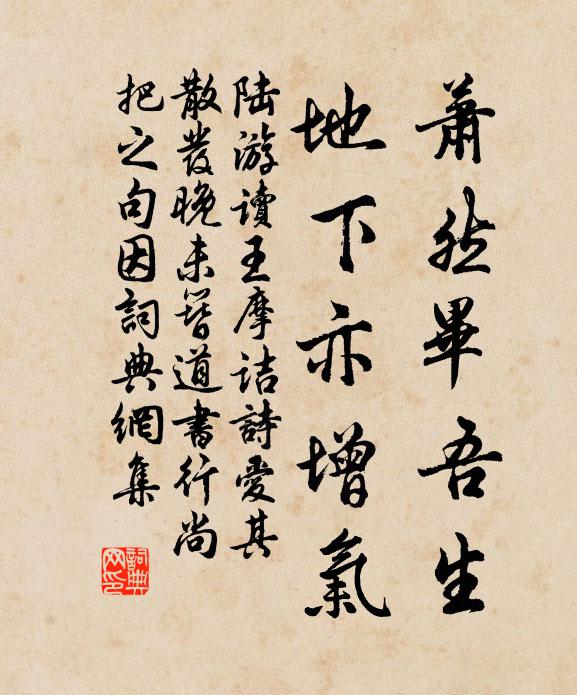 蕭然畢吾生
地下亦增氣
陸游讀王摩詰詩愛其
散發晚未簪道書行尚
把之句因詞典網集
詞典网印